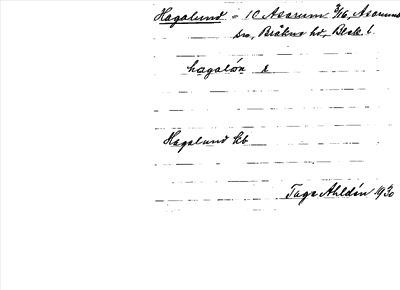 Hagalund = 1 C Asarum 3/16, Asarums
sn, Bräkne hd, Blek. l.
hagalón
Hagalund Eb
Tage Ahldén 1930